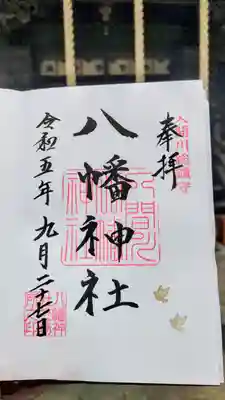 奉拝
八幡神社
令和五年九月二十七日